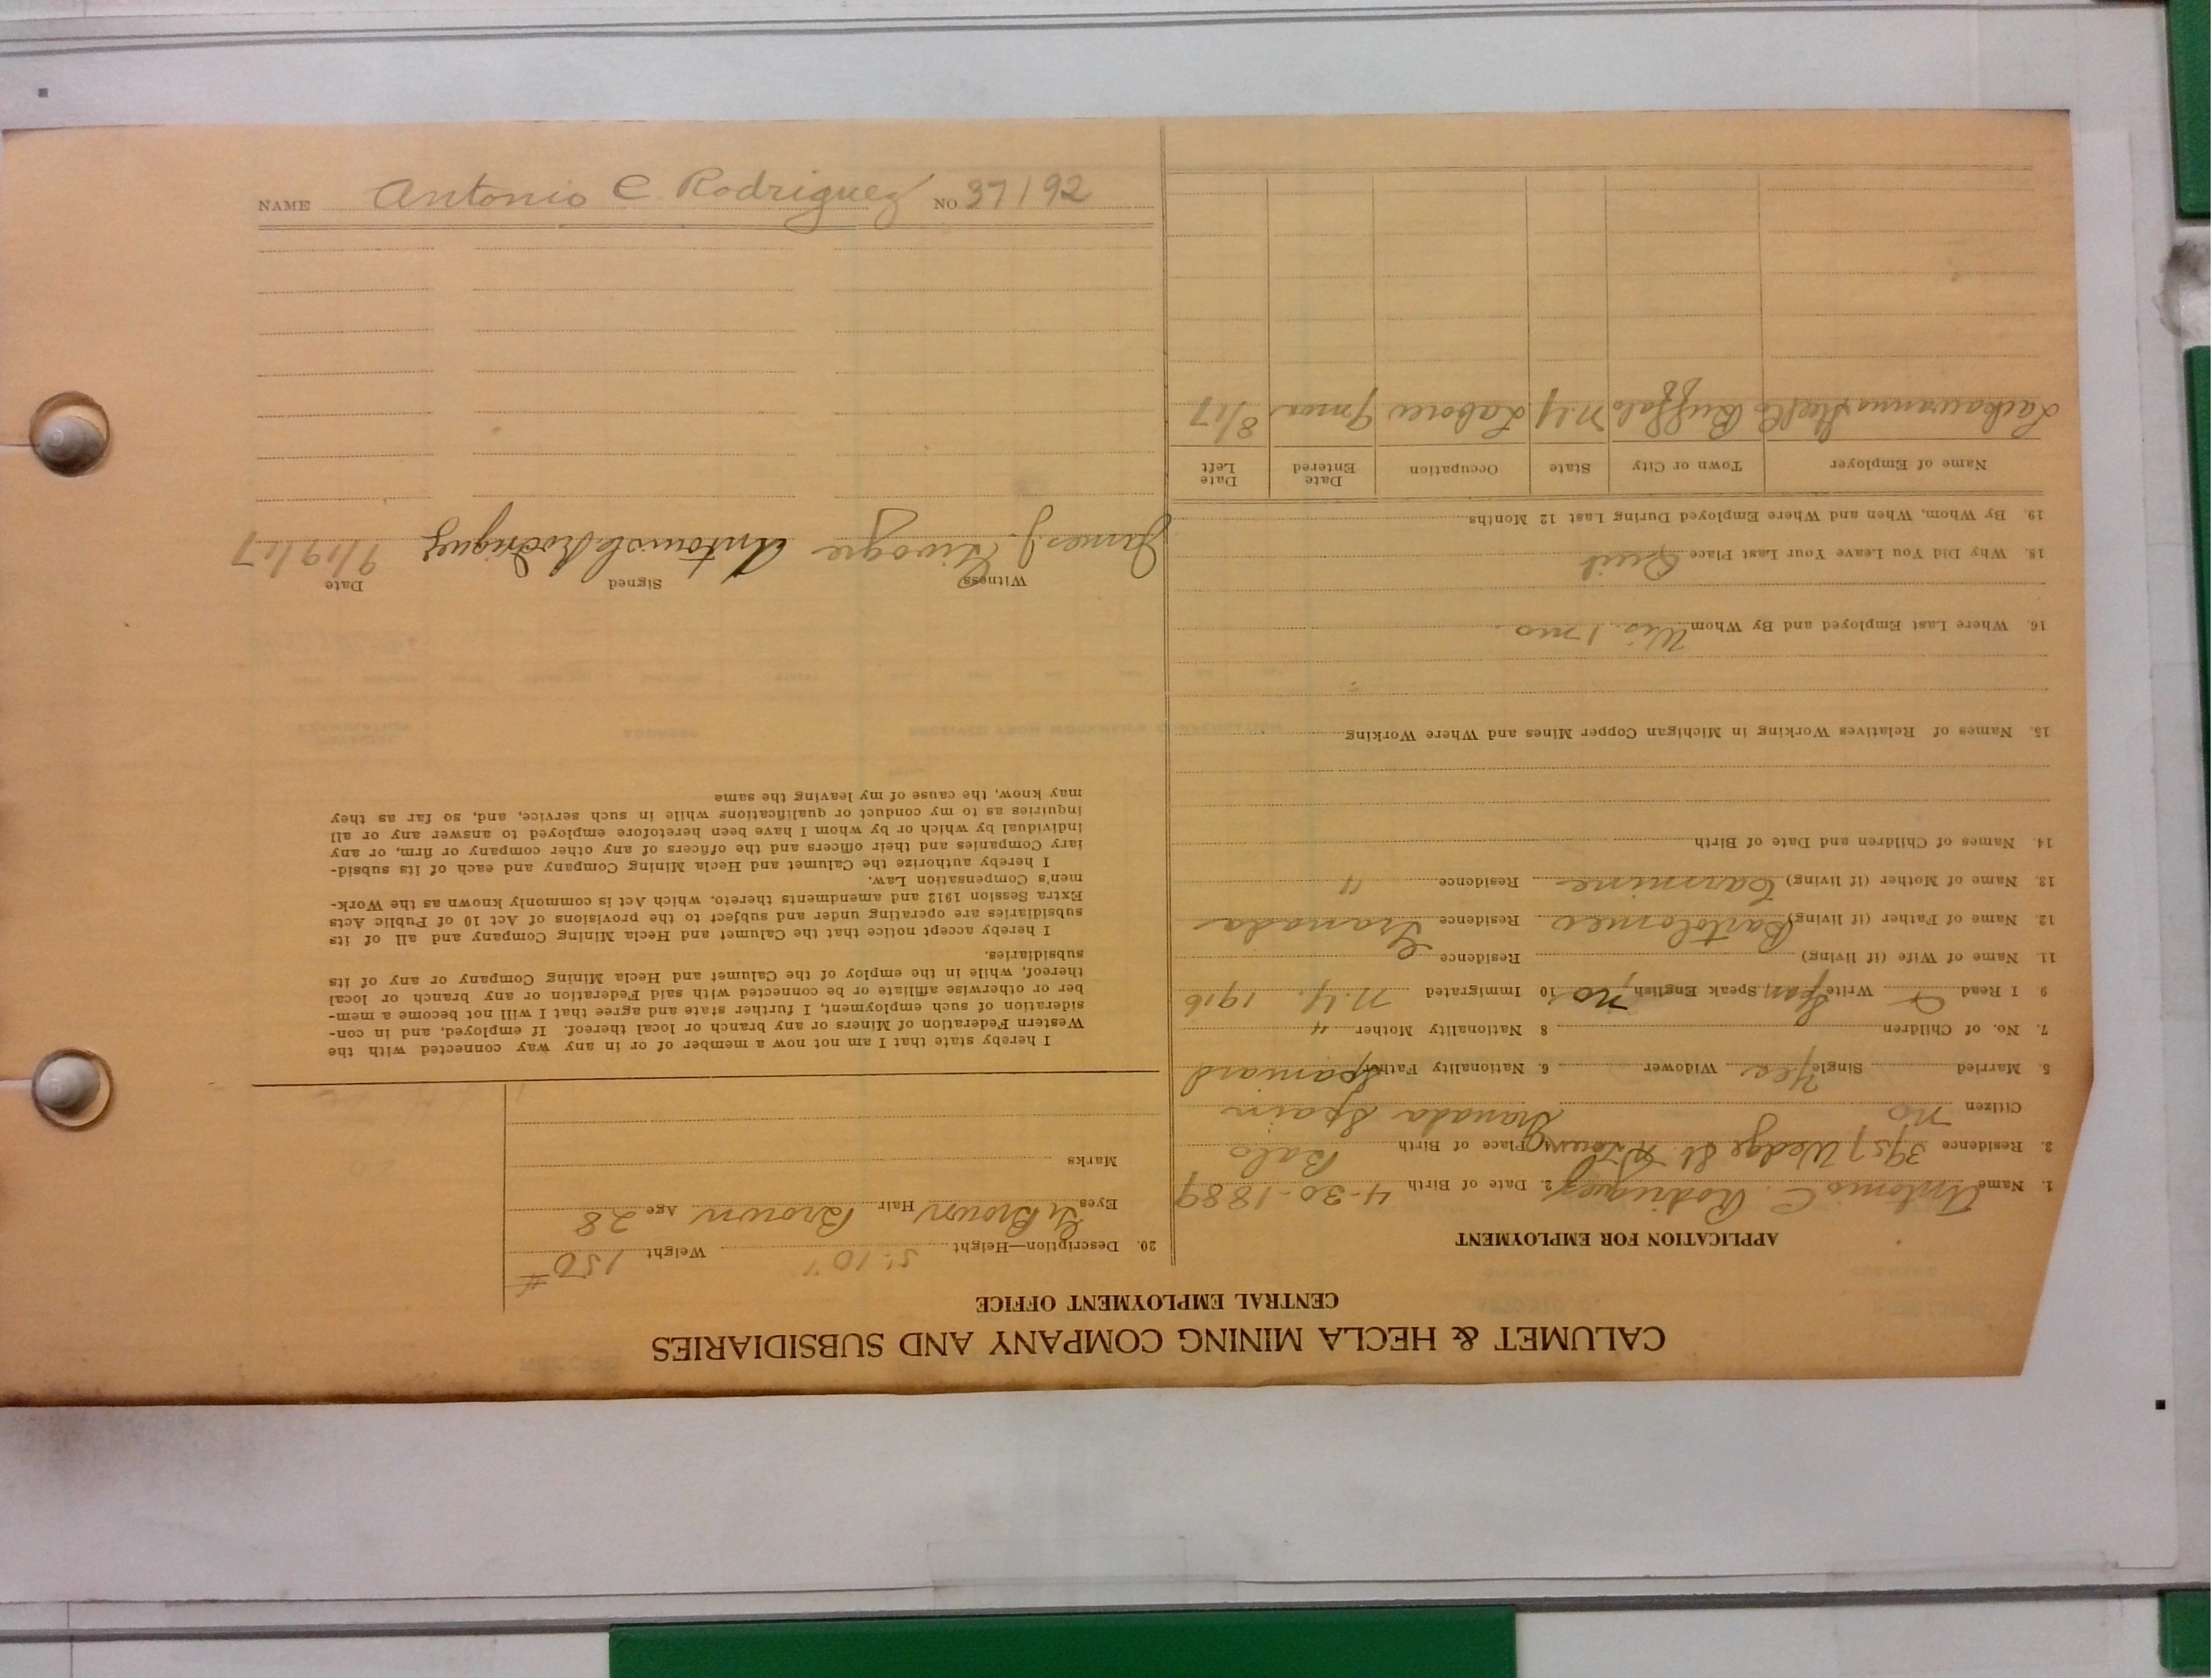 CALUMET & HECLA MINING COMPANY AND SUBSIDIARIES
CENTRAL EMPLOYMENT OFFICE
APPLICATION FOR EMPLOYMENT
1. Name Antonio C. Rodriguez 2. Date of Birth 4-30-1889
3. Residence 3957 Wedge St. Place of Birth
Citizen no Granada Spain
5. Married Single Yes Widower 6. Nationality Father Spaniard
7. No. of Children 8 Nationality Mother "
9 I Read Write Span Speak English no 10 Immigrated N.Y. 1916
11. Name of Wife (if living) Residence
12. Name of Father (if living) Bartolomeo Residence Granada
13. Name of Mother (if living) Carmine Residence "
14. Names of Children and Date of Birth
15. Names of Relatives Working in Michigan Copper Mines and Where Working
16. Where Last Employed and By Whom 1 mo.
18. Why Did You Leave Your Last Place Quit
19. By Whom, When and Where Employed During Last 12 Months
Name of Employer Town or City State Occupation Date Entered Date Left
Lackawanna Steel Co Buffalo N.Y Laborer 9 mos 8/17
20. Description—Height 5' 10" Weight 150 #
Eyes Brown Hair Brown Age 28
Marks
I hereby state that I am not now a member of or in any way connected with the
Western Federation of Miners or any branch or local thereof. If employed, and in con-
sideration of such employment, I further state and agree that I will not become a mem-
ber or otherwise affiliate or be connected with said Federation or any branch or local
thereof, while in the employ of the Calumet and Hecla Mining Company or any of its
subsidiaries.
I hereby accept notice that the Calumet and Hecla Mining Company and all of its
subsidiaries are operating under and subject to the provisions of Act 10 of Public Acts
Extra Session 1912 and amendments thereto, which Act is commonly known as the Work-
men's Compensation Law.
I hereby authorize the Calumet and Hecla Mining Company and each of its subsid-
iary Companies and their officers and the officers of any other company or firm, or any
individual by which or by whom I have been heretofore employed to answer any or all
inquiries as to my conduct or qualifications while in such service, and, so far as they
may know, the cause of my leaving the same
Witness Signed Date
James J. Antonio C Rodriguez 9/19/17
NAME Antonio C Rodriguez NO 37192